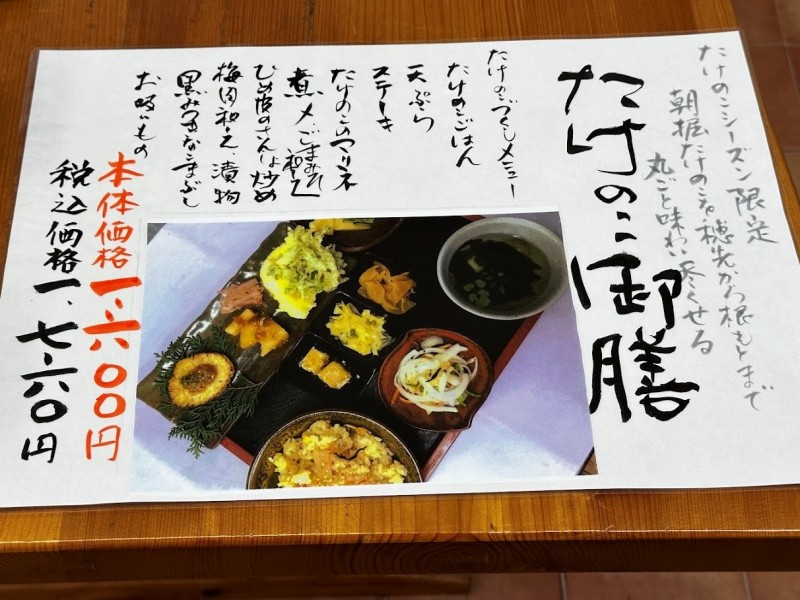 たけのこシーズン限定
朝掘たけのこを穂先から根もとまで
丸ごと味わい尽くせる
たけのこ御膳
たけのこづくしメニュー
たけのこごはん
天ぷら
ステーキ
たけのこのマリネ
煮〆、ごまみそ和え
ひめ皮のさんしょ炒め
梅肉和え、漬物
黒みつきなこまぶし
お吸いもの
本体価格一、六〇〇円
税込価格一、七六〇円